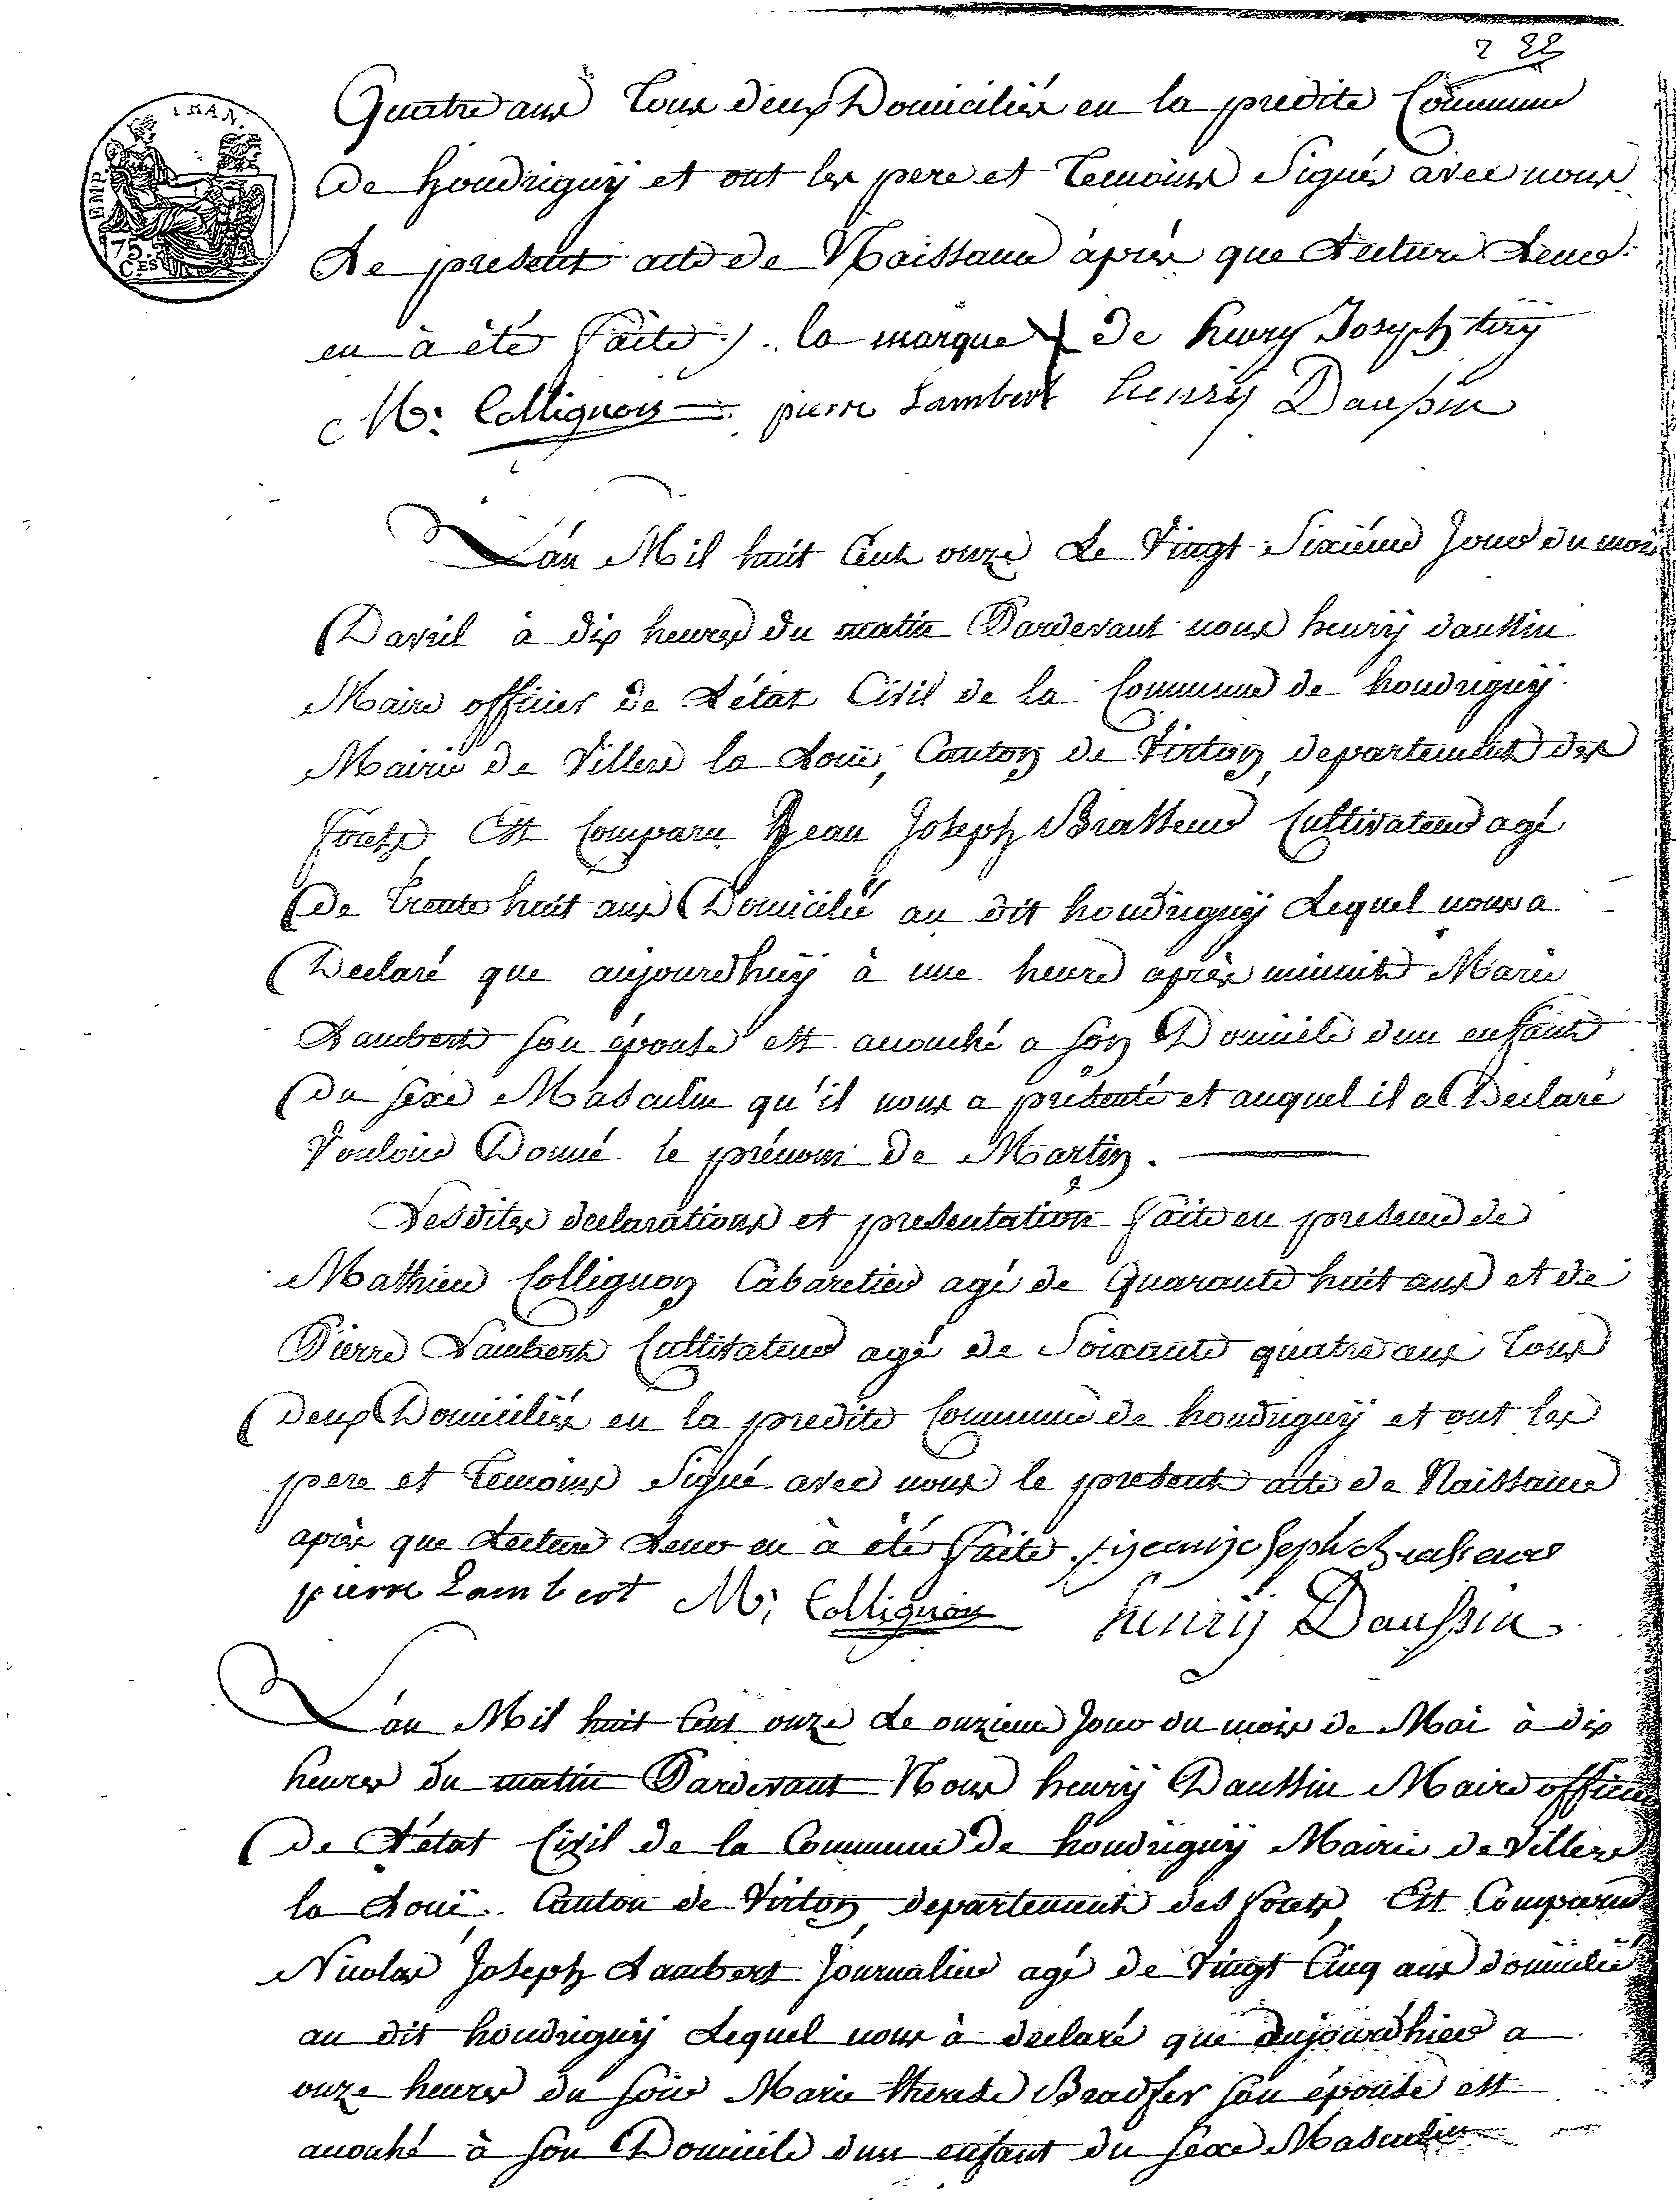 Quatre ans Tous deux Domiciliés en la predite Commune
EMP. FRAN.
75. CES
de houdrigny et ont les pere et Temoins Signés avec nous
Le present acte de Naissance après que Lecture Leur
en à été faite . la marque de henry Joseph tiry
M: Collignon pierre Lambert henrij Daussin
L'an Mil huit Cent onze Le Vingt Sixiéme Jour du mois
Davril à dix heures du matin Pardevant nous henrÿ daussin
Maire officier de L'état Civil de la Commune de houdrignÿ
Mairie de Villers la Loüe, Canton de Virton, departement des
forets, Est Comparu Jean Joseph Brasseur Cultivateur agé
De Trente huit ans Domicilié au dit houdrignÿ Lequel nous a
Declaré que aujourdhuÿ à une heure après minuit Marie
Lambert son épouse est acouché a son Domicile d'un enfant
Du sexe Masculin qu'il nous a présenté et auquel il a Declaré
Vouloir Donné le prénom de Martin.
Lesdites declarations et presentation faite en presence de
Mathieu Collignon Cabaretier agé de Quarante huit ans et de
Pierre Lambert Cultivateur agé de Soixante quatre ans Tous
deux Domiciliés en la predite Commune de houdrignÿ et ont les
pere et Temoins Signé avec nous le present acte de Naissance
après que Lecture Leur en à été faite . jeanjoseph brasseur
pierre Lambert M: Collignon henrij Daussin
L'an Mil huit Cent onze Le onzieme Jour du mois de Mai à dix
heures du matin Pardevant Nous henrÿ Daussin Maire officier
De L'état Civil de la Commune De houdrignÿ Mairie de Villers
la Loüe. Canton de Virton, departement des forets, Est Comparu
Nicolas Joseph Lambert Journalier agé de Vingt Cinq ans domicilié
au dit houdrignÿ Lequel nous à declaré que aujourdhier a
onze heures du soir Marie therese Bradfer son épouse est
acouché à son Domicile d'un enfant du sexe Masculin